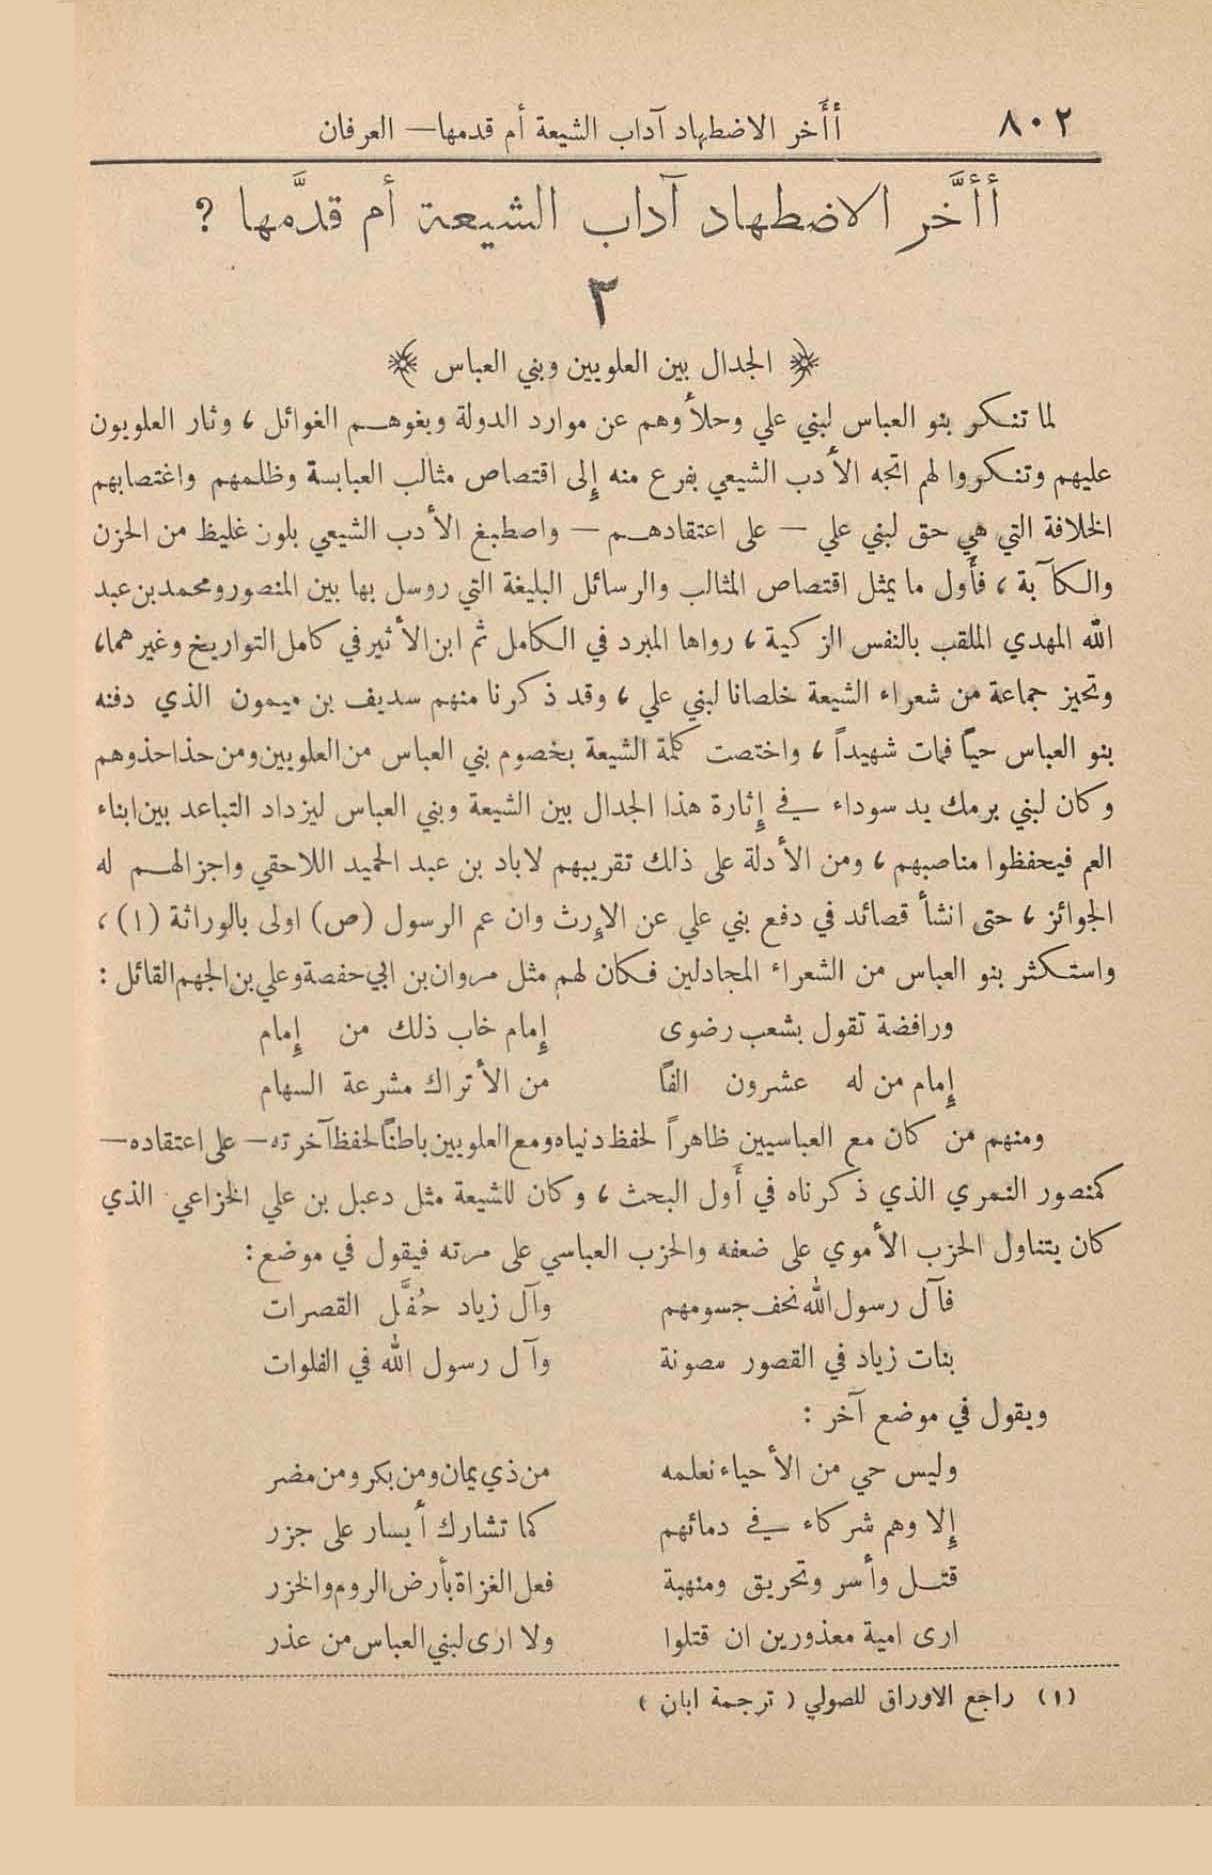 ٨٠٢
أأَخر الاضطهاد آداب الشيعة أم قدمها — العرفان
أأخَّر الاضطهاد آداب الشيعة أم قدَّمها ?
٣
الجدال بين العلويين وبني العباس
لما تنكر بنو العباس لبني علي وحلأوهم عن موارد الدولة وبغوهم الغوائل ، وثار العلويون
عليهم وتنكروا لهم اتجه الأدب الشيعي بفرع منه إلى اقتصاص مثالب العبابسة وظلمهم واغتصابهم
الخلافة التي هي حق لبني علي — على اعتقادهم — واصطبغ الأدب الشيعي بلون غليظ من الحزن
والكآبة ، فأول ما يمثل اقتصاص المثالب والرسائل البليغة التي روسل بها بين المنصور ومحمد بن عبد
الله المهدي الملقب بالنفس الزكية ، رواها المبرد في الكامل ثم ابن الأثير في كامل التواريخ وغيرهما،
وتحيز جماعة من شعراء الشيعة خلصانا لبني علي ، وقد ذكرنا منهم سديف بن ميمون الذي دفنه
بنو العباس حياً فمات شهيداً ، واختصت كلمة الشيعة بخصوم بني العباس من العلويين ومن حذا حذوهم
وكان لبني برمك يد سوداء في إثارة هذا الجدال بين الشيعة وبني العباس ليزداد التباعد بين ابناء
العم فيحفظوا مناصبهم ، ومن الأدلة على ذلك تقريبهم لاباد بن عبد الحميد اللاحقي واجزالهم له
الجوائز ، حتى انشأ قصائد في دفع بني علي عن الإرث وان عم الرسول (ص) اولى بالوراثة (١) ،
واستكثر بنو العباس من الشعراء المجادلين فكان لهم مثل مروان بن ابي حفصة وعلي بن الجهم القائل :
ورافضة تقول بشعب رضوى إمام خاب ذلك من إمام
إمام من له عشرون الفاً من الأتراك مشرعة السهام
ومنهم من كان مع العباسيين ظاهراً لحفظ دنياه ومع العلويين باطناً لحفظ آخرته — على اعتقاده —
كمنصور النمري الذي ذكرناه في أَول البحث ، وكان للشيعة مثل دعبل بن علي الخزاعي الذي
كان يتناول الحزب الأموي على ضعفه والحزب العباسي على مرته فيقول في موضع :
فآل رسول الله نحف جسومهم وآل زياد حُفَّل القصرات
بنات زياد في القصور مصونة وآل رسول الله في الفلوات
ويقول في موضع آخر :
وليس حي من الأحياء نعلمه من ذي يمان ومن بكر ومن مضر
إلا وهم شركاء في دمائهم كما تشارك أيسار على جزر
قتل وأسر وتحريق ومنهبة فعل الغزاة بأرض الروم والخزر
ارى امية معذورين ان قتلوا ولا ارى لبني العباس من عذر
(١) راجع الاوراق للصولي ( ترجمة ابان )